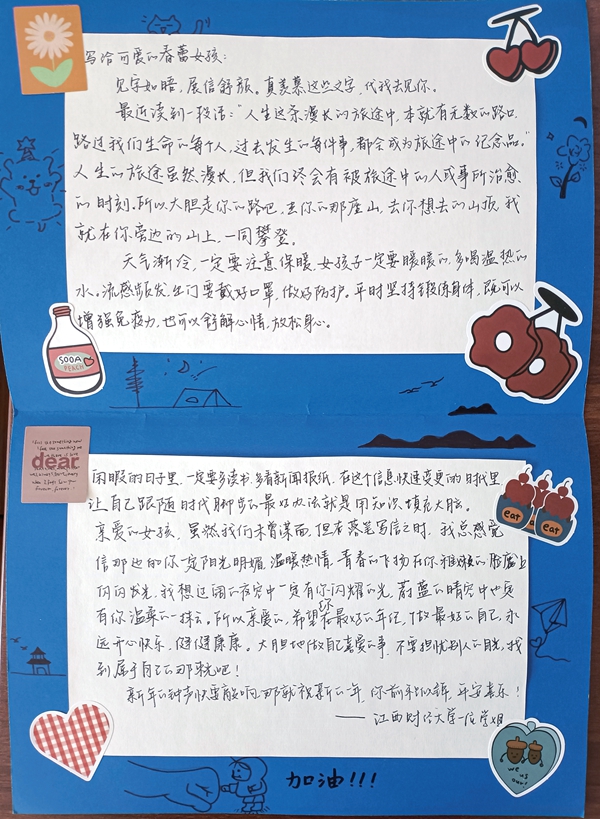 写给可爱的春蕾女孩：
见字如晤，展信舒颜。真羡慕这些文字，代我去见你。
最近读到一段话：“人生这条漫长的旅途中，本就有无数的路口，
路过我们生命的每个人，过去发生的每件事，都会成为旅途中的纪念品。”
人生的旅途虽然漫长，但我们终会有被旅途中的人或事所治愈
的时刻。所以大胆走你的路吧，去你的那座山，去你想去的山顶，我
就在你旁边的山上，一同攀登。
天气渐冷，一定要注意保暖，女孩子一定要暖暖的，多喝温热的
水。流感频发，出门要戴好口罩，做好防护。平时坚持锻炼身体，既可以
增强免疫力，也可以舒解心情，放松身心。
SODA
PEACH
dear
闲暇的日子里，一定要多读书，多看新闻报纸，在这个信息快速变更的时代里
让自己跟随时代脚步的最好办法就是用知识填充大脑。
亲爱的女孩，虽然我们未曾谋面，但在落笔写信之时，我总感觉
信那边的你一定阳光明媚，温暖热情，青春的飞扬在你稚嫩的脸庞上
闪闪发光，我想辽阔的夜穹中一定有你闪耀的光，蔚蓝的晴空中也定
有你温柔的一抹云。所以亲爱的，希望你在最好的年纪，做最好的自己，永
远开心快乐，健健康康。大胆地做自己喜爱的事，不要担忧别人的目光，找
到属于自己的那束光吧！
新年的钟声快要敲响，那就祝新的一年，你前程似锦，平安喜乐！
——江西财经大学一位学姐
eat
eat
we
us
our!
加油!!!